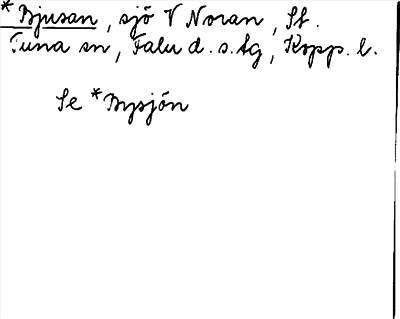 * Bjusan, sjö V Noran, St.
Tuna sn, Falu d. s. tg, Kopp. l.
Se * Bysjön